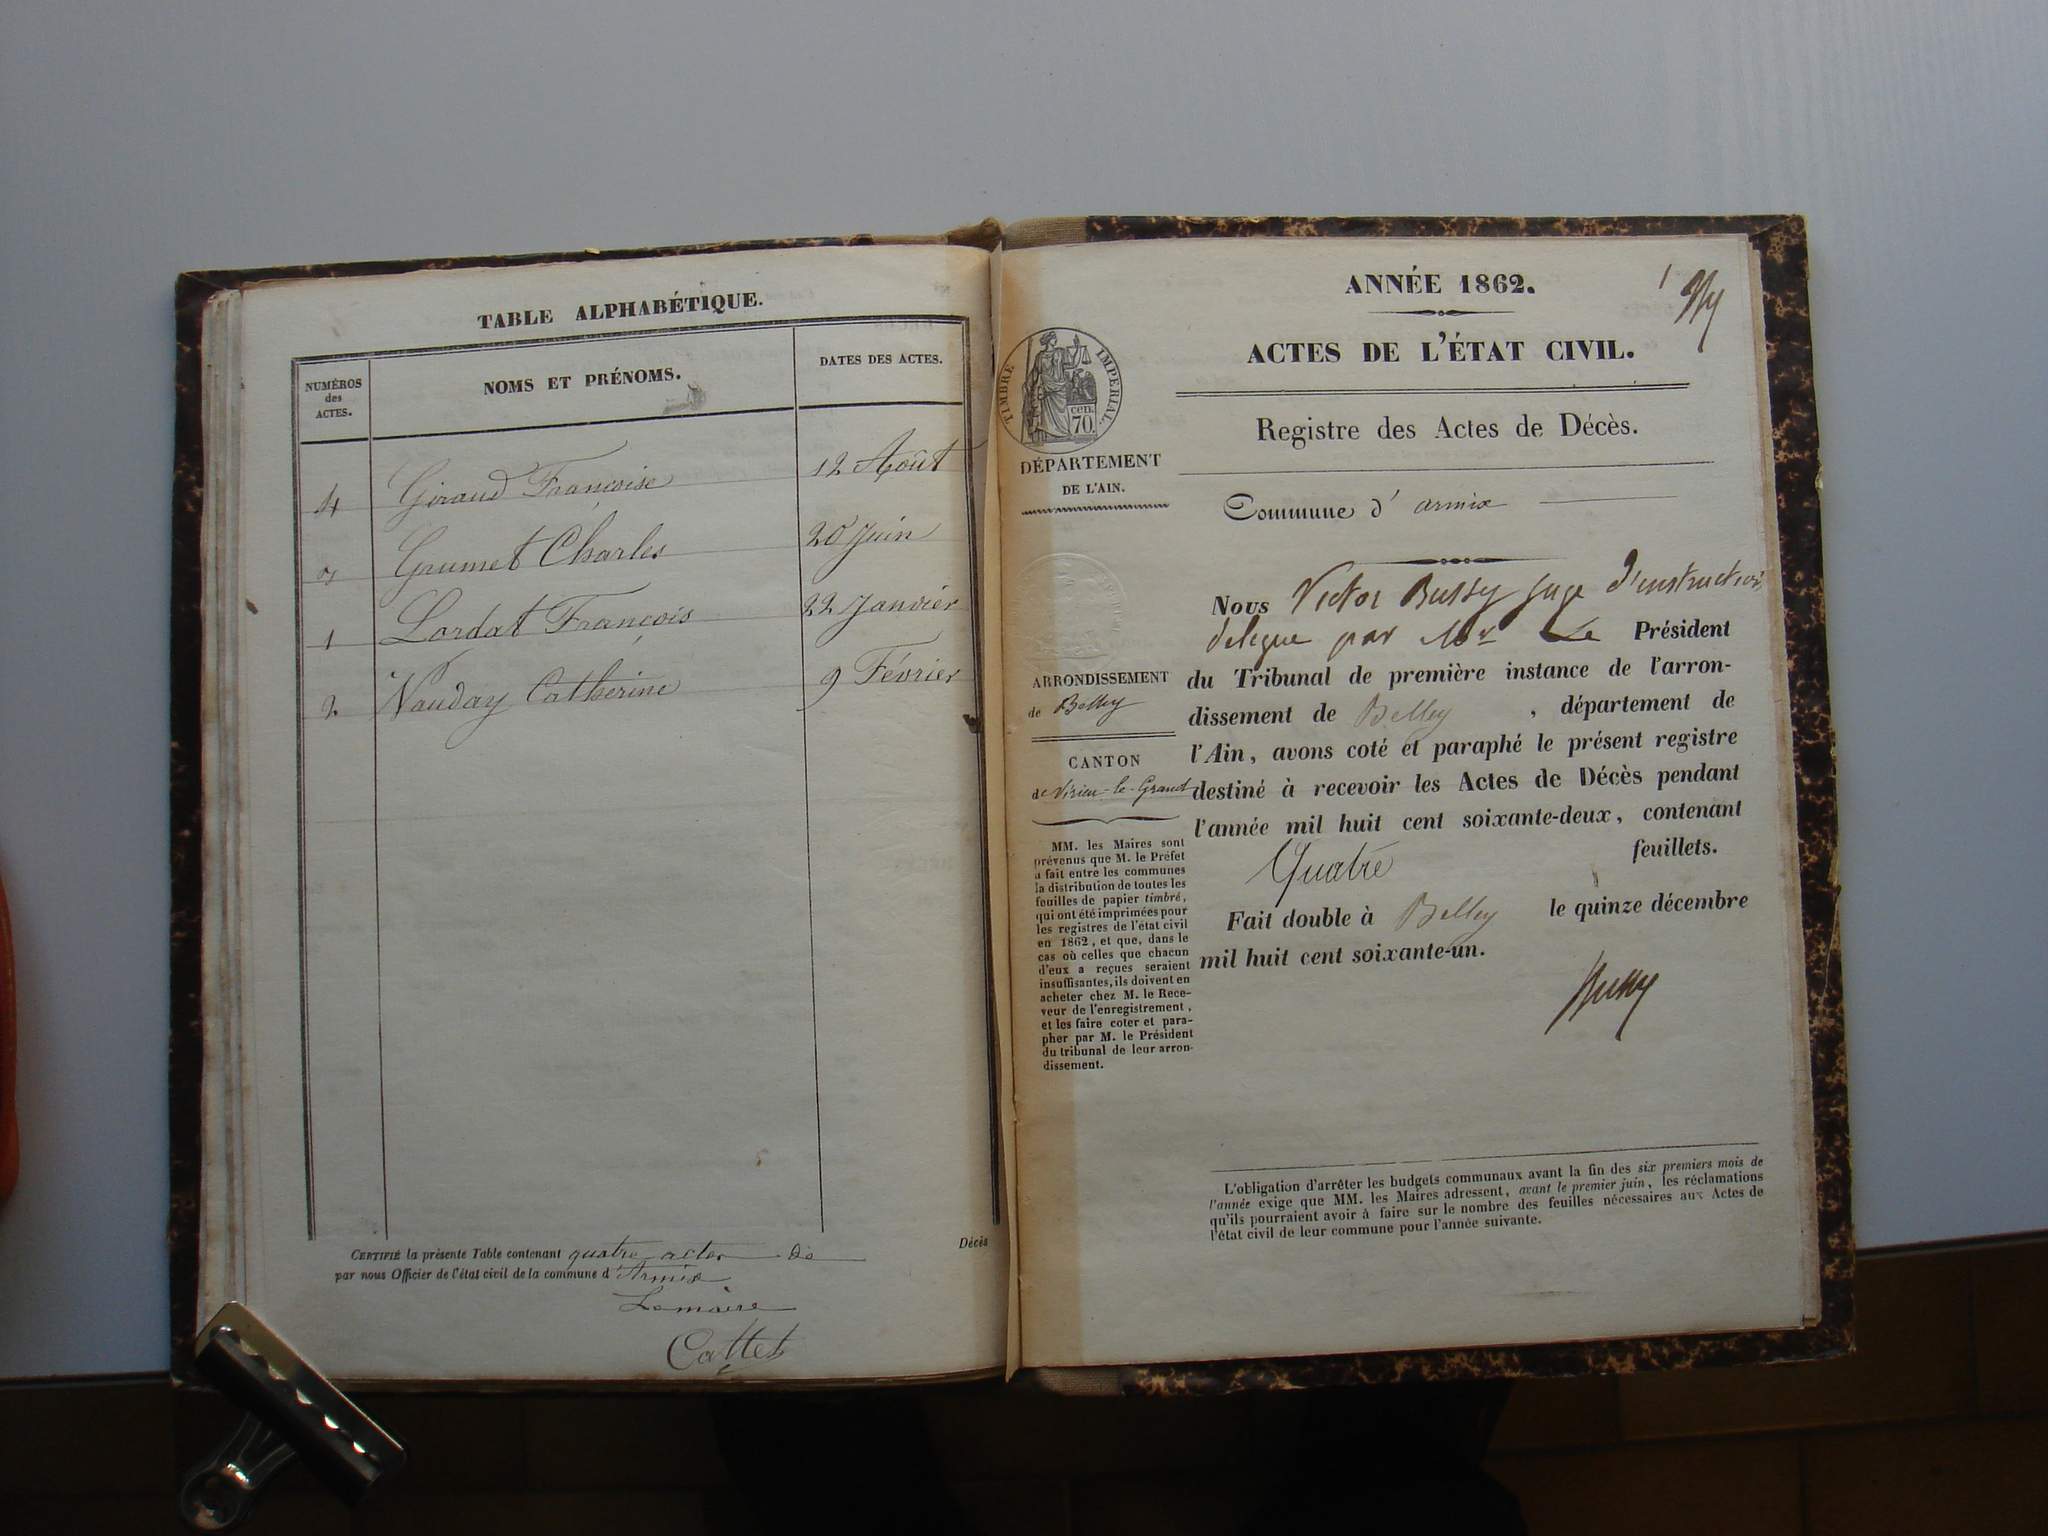 TABLE ALPHABÉTIQUE.
NUMÉROS
des
ACTES.
NOMS ET PRÉNOMS.
DATES DES ACTES.
4 Giraud Françoise 12 Août
3 Grumet Charles 20 Juin
1 Lordat François 22 Janvier
2 Vauday Catherine 9 Février
CERTIFIÉ la présente Table contenant quatre actes de Décès
par nous Officier de l'état civil de la commune d'Armix
Lemaire
Cattet
ANNÉE 1862.
ACTES DE L'ÉTAT CIVIL.
Registre des Actes de Décès.
TIMBRE IMPERIAL.
cen.
70.
DÉPARTEMENT
DE L'AIN.
Commune d'armix
ARRONDISSEMENT
de Belley
CANTON
de Virieu-le-Grand
MM. les Maires sont
prévenus que M. le Préfet
a fait entre les communes
la distribution de toutes les
feuilles de papier timbré,
qui ont été imprimées pour
les registres de l'état civil
en 1862, et que, dans le
cas où celles que chacun
d'eux a reçues seraient
insuffisantes, ils doivent en
acheter chez M. le Rece-
veur de l'enregistrement,
et les faire coter et para-
pher par M. le Président
du tribunal de leur arron-
dissement.
Nous Victor Bussy juge d'instruction
delegue par Mr Le Président
du Tribunal de première instance de l'arron-
dissement de Belley, département de
l'Ain, avons coté et paraphé le présent registre
destiné à recevoir les Actes de Décès pendant
l'année mil huit cent soixante-deux, contenant
Quatre feuillets.
Fait double à Belley le quinze décembre
mil huit cent soixante-un.
Bussy
L'obligation d'arrêter les budgets communaux avant la fin des six premiers mois de
l'année exige que MM. les Maires adressent, avant le premier juin, les réclamations
qu'ils pourraient avoir à faire sur le nombre des feuilles nécessaires aux Actes de
l'état civil de leur commune pour l'année suivante.